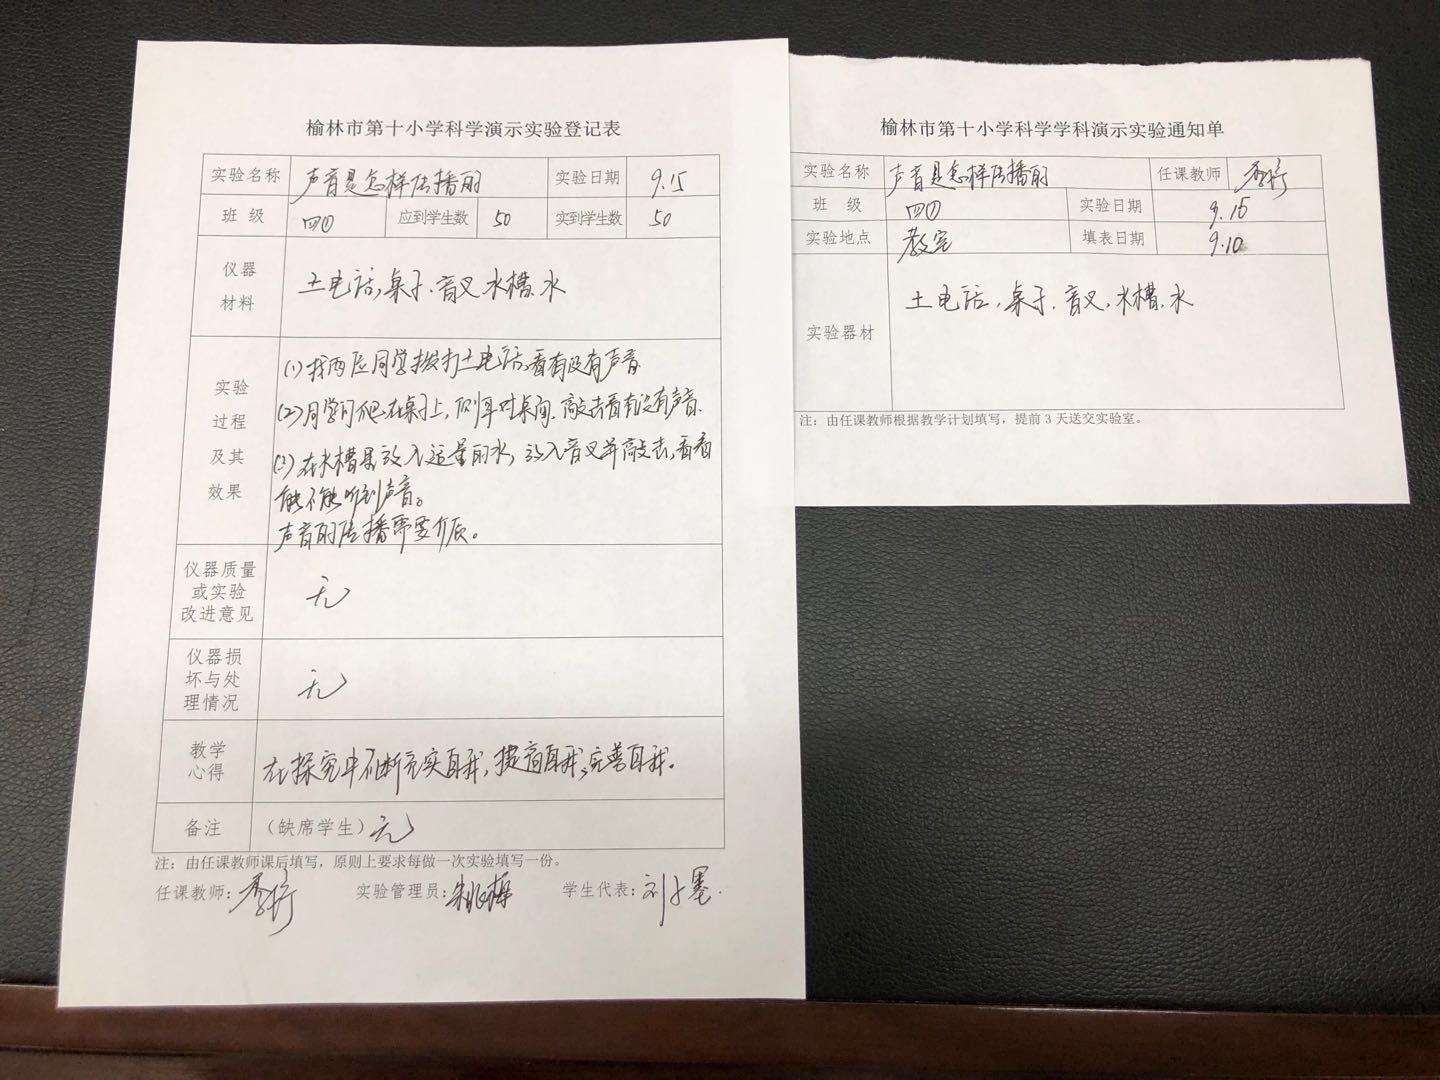 榆林市第十小学科学演示实验登记表
实验名称 声音是怎样传播的 实验日期 9.15
班 级 四① 应到学生数 50 实到学生数 50
仪器
材料
土电话、桌子、音叉、水槽、水
实验
过程
及其
效果
(1)找两位同学拨打土电话,看有没有声音
(2)同学们爬在桌子上,侧耳对桌面.敲击看有没有声音.
(3)在水槽里放入适量的水,放入音叉并敲击,看看
能不能听到声音。
声音的传播需要介质。
仪器质量
或实验
改进意见
无
仪器损
坏与处
理情况
无
教学
心得
在探究中不断充实自我,提高自我,完善自我。
备注 (缺席学生) 无
注:由任课教师课后填写,原则上要求每做一次实验填写一份。
任课教师: 实验管理员: 学生代表:
榆林市第十小学科学学科演示实验通知单
实验名称 声音是怎样传播的 任课教师
班 级 四① 实验日期 9.15
实验地点 教室 填表日期 9.10
实验器材
土电话,桌子.音叉,水槽,水
注:由任课教师根据教学计划填写,提前 3 天送交实验室。